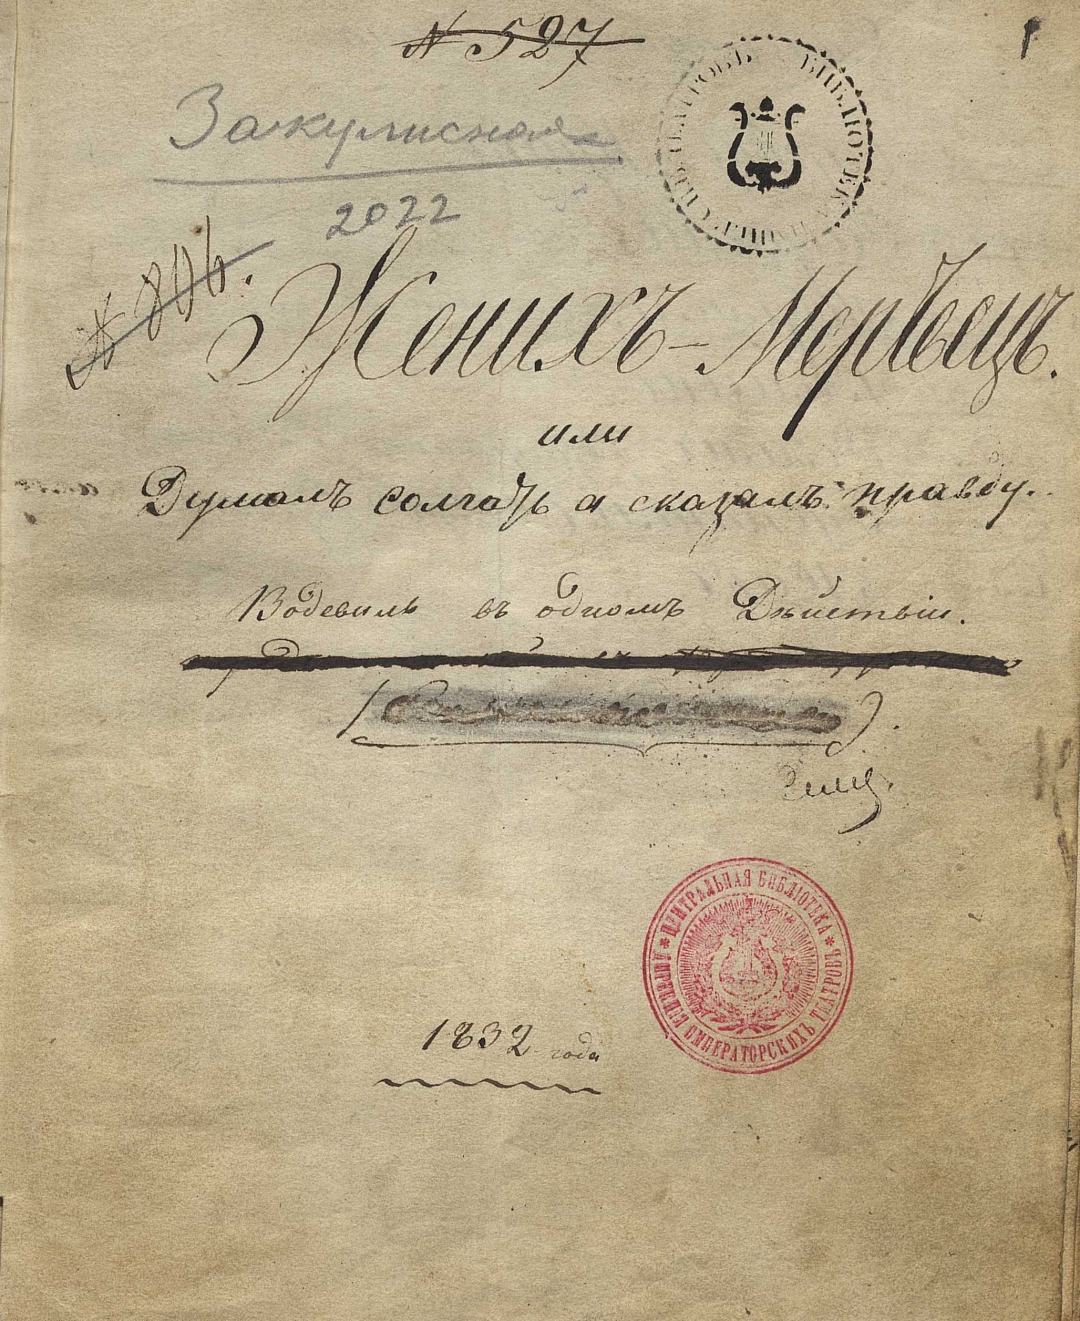 № 527
Закулисная
2022
БИБЛІОТЕКА ТЕАТРОВЪ
№ 806.
Женихъ-Мертвецъ.
или
Думалъ солгать а сказалъ правду.
Водевиль въ одномъ Дѣйствіи.
ЦЕНТРАЛЬНАЯ БИБЛІОТЕКА * ДИРЕКЦІИ ИМПЕРАТОРСКИХЪ ТЕАТРОВЪ *
1832 года